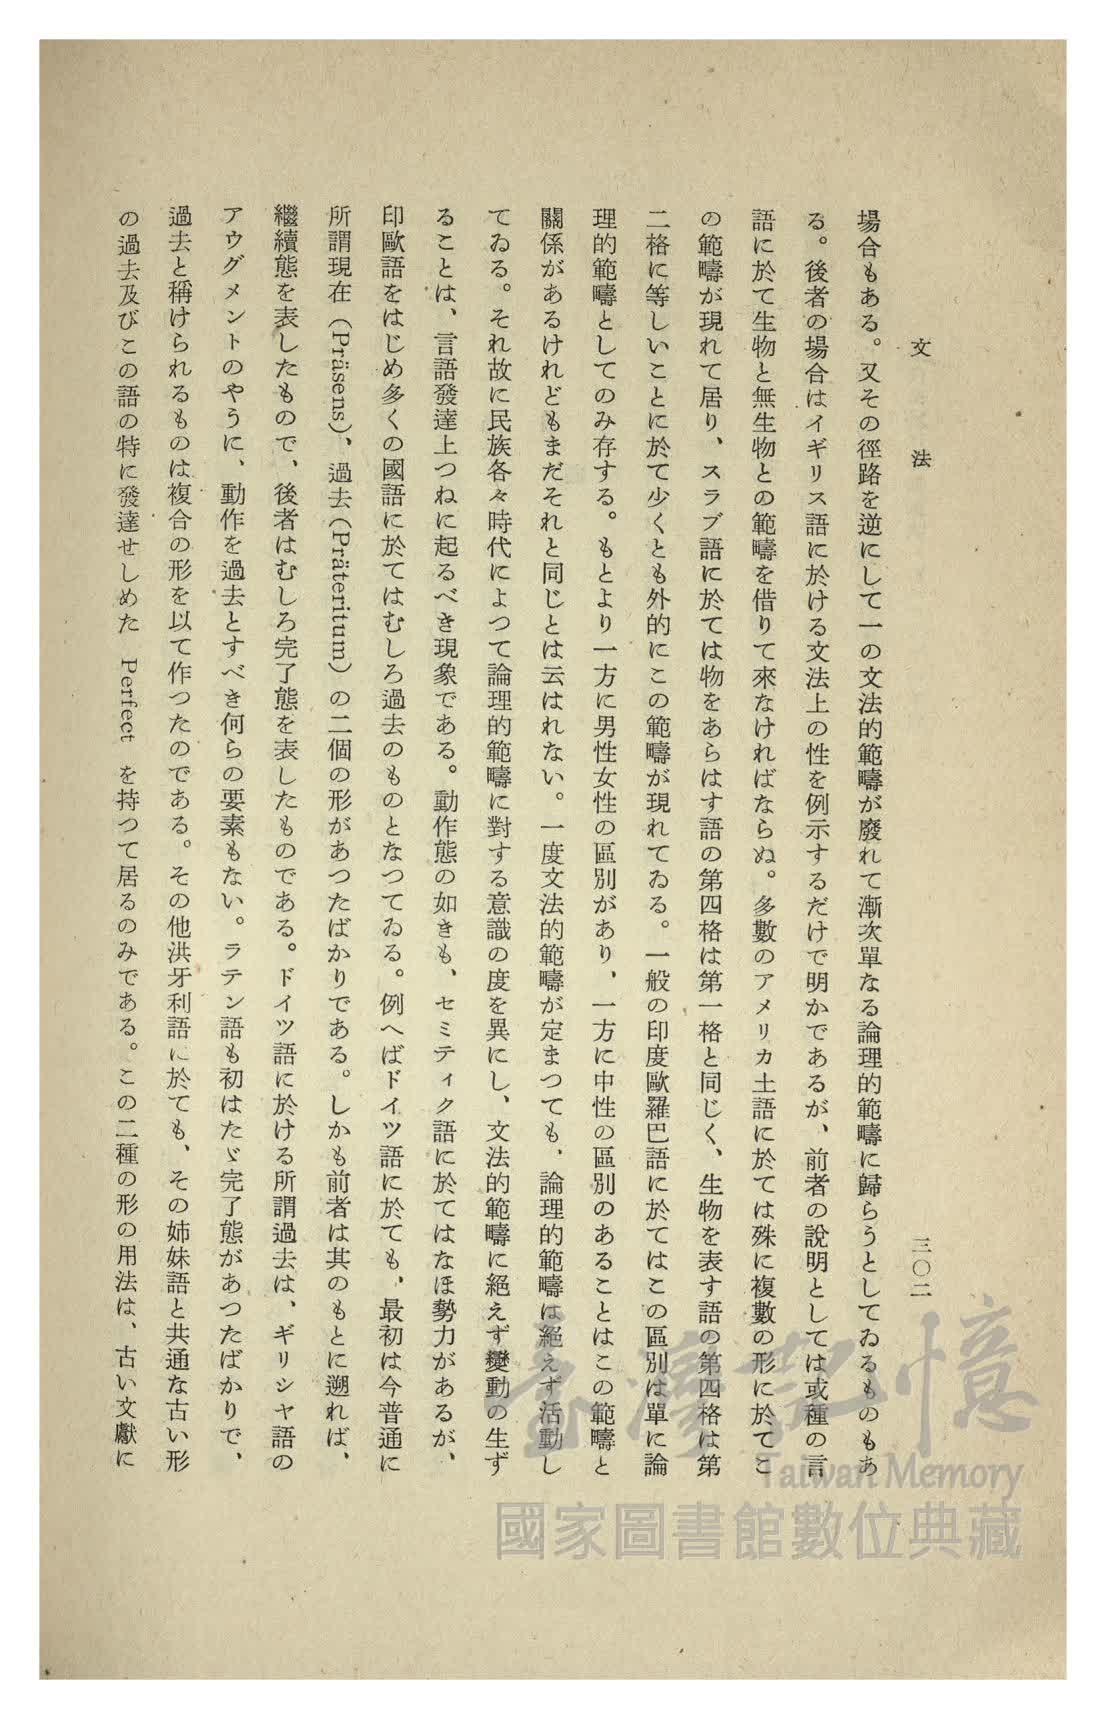 文法
三〇二
場合もある。又その徑路を逆にして一の文法的範疇が廢れて漸次單なる論理的範疇に歸らうとしてゐるものもあ
る。後者の場合はイギリス語に於ける文法上の性を例示するだけで明かであるが、前者の說明としては或種の言
語に於て生物と無生物との範疇を借りて來なければならぬ。多數のアメリカ土語に於ては殊に複數の形に於てこ
の範疇が現れて居り、スラブ語に於ては物をあらはす語の第四格は第一格と同じく、生物を表す語の第四格は第
二格に等しいことに於て少くとも外的にこの範疇が現れてゐる。一般の印度歐羅巴語に於てはこの區別は單に論
理的範疇としてのみ存する。もとより一方に男性女性の區別があり、一方に中性の區別のあることはこの範疇と
關係があるけれどもまだそれと同じとは云はれない。一度文法的範疇が定まつても、論理的範疇は絕えず活動し
てゐる。それ故に民族各々時代によつて論理的範疇に對する意識の度を異にし、文法的範疇に絕えず變動の生ず
ることは、言語發達上つねに起るべき現象である。動作態の如きも、セミティク語に於てはなほ勢力があるが、
印歐語をはじめ多くの國語に於てはむしろ過去のものとなつてゐる。例へばドイツ語に於ても、最初は今普通に
所謂現在（Präsens）、過去（Präteritum）の二個の形があつたばかりである。しかも前者は其のもとに遡れば、
繼續態を表したもので、後者はむしろ完了態を表したものである。ドイツ語に於ける所謂過去は、ギリシヤ語の
アウグメントのやうに、動作を過去とすべき何らの要素もない。ラテン語も初はたゞ完了態があつたばかりで、
過去と稱けられるものは複合の形を以て作つたのである。その他洪牙利語に於ても、その姉妹語と共通な古い形
の過去及びこの語の特に發達せしめた Perfect を持つて居るのみである。この二種の形の用法は、古い文獻に
臺灣記憶
Taiwan Memory
國家圖書館數位典藏